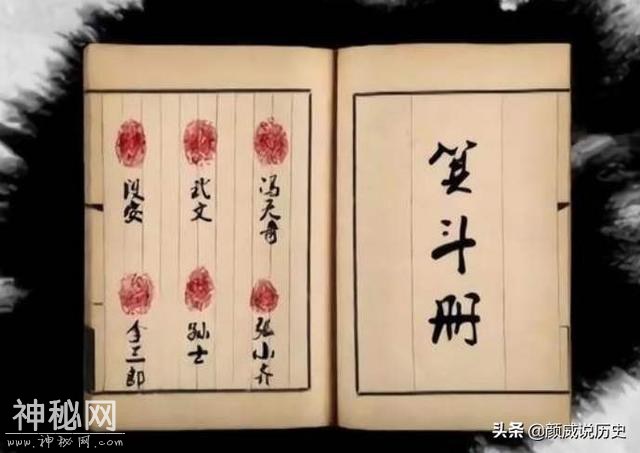 箕斗册
冯天
武文
段安
张小
孙士
李三郎
神秘网
www.神秘网.com
头条 @颜咸说历史